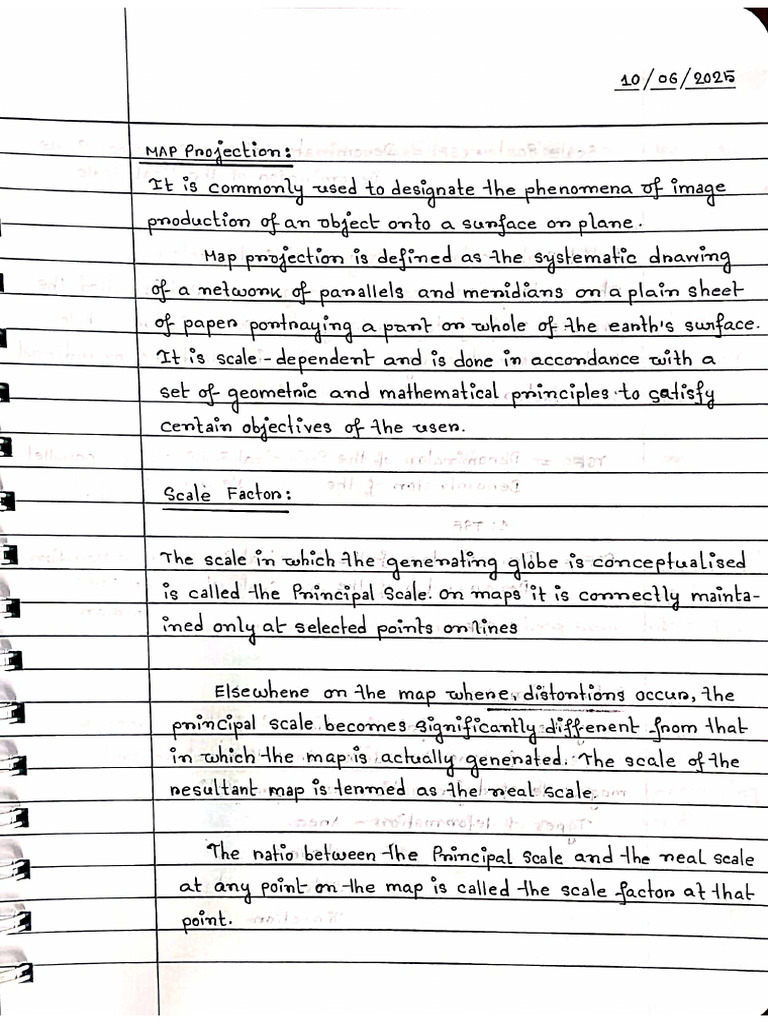 10/06/2025
MAP Projection:
It is commonly used to designate the phenomena of image
production of an object onto a surface or plane.
Map projection is defined as the systematic drawing
of a network of parallels and meridians on a plain sheet
of paper portraying a part or whole of the earth's surface.
It is scale-dependent and is done in accordance with a
set of geometric and mathematical principles to satisfy
certain objectives of the user.
Scale Factor:
The scale in which the generating globe is conceptualised
is called the Principal Scale. On maps it is correctly mainta-
ined only at selected points or lines
Elsewhere on the map where, distortions occur, the
principal scale becomes significantly different from that
in which the map is actually generated. The scale of the
resultant map is termed as the real scale.
The ratio between the Principal Scale and the real scale
at any point on the map is called the scale factor at that
point.